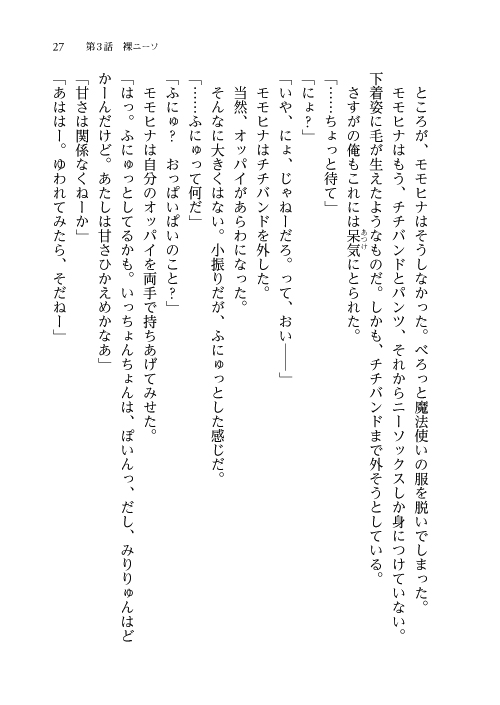 27　第３話　裸ニーソ
ところが、モモヒナはそうしなかった。べろっと魔法使いの服を脱いでしまった。
モモヒナはもう、チチバンドとパンツ、それからニーソックスしか身につけていない。
下着姿に毛が生えたようなものだ。しかも、チチバンドまで外そうとしている。
さすがの俺もこれには呆気にとられた。
あっけ
「……ちょっと待て」
「にょ？」
「いや、にょ、じゃねーだろ。って、おい――」
モモヒナはチチバンドを外した。
当然、オッパイがあらわになった。
そんなに大きくはない。小振りだが、ふにゅっとした感じだ。
「……ふにゅって何だ」
「ふにゅ？　おっぱいぱいのこと？」
モモヒナは自分のオッパイを両手で持ちあげてみせた。
「はっ。ふにゅっとしてるかも。いっちょんちょんは、ぽいんっ、だし、みりりゅんはど
かーんだけど。あたしは甘さひかえめかなあ」
「甘さは関係なくねーか」
「あははー。ゆわれてみたら、そだねー」